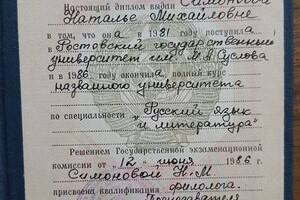 Настоящий диплом выдан Самоновой
Наталье Михайловне
в том, что она в 1981 году поступила
в Ростовский государственный
университет им. М.А. Суслова
и в 1986 окончила полный курс
названного университета
по специальности „Русский язык
и литература"
Решением Государственной экзаменационной
комиссии от „12" июня 1986 г.
Самоновой Н.М.
присвоена квалификация филолога.
Преподавателя